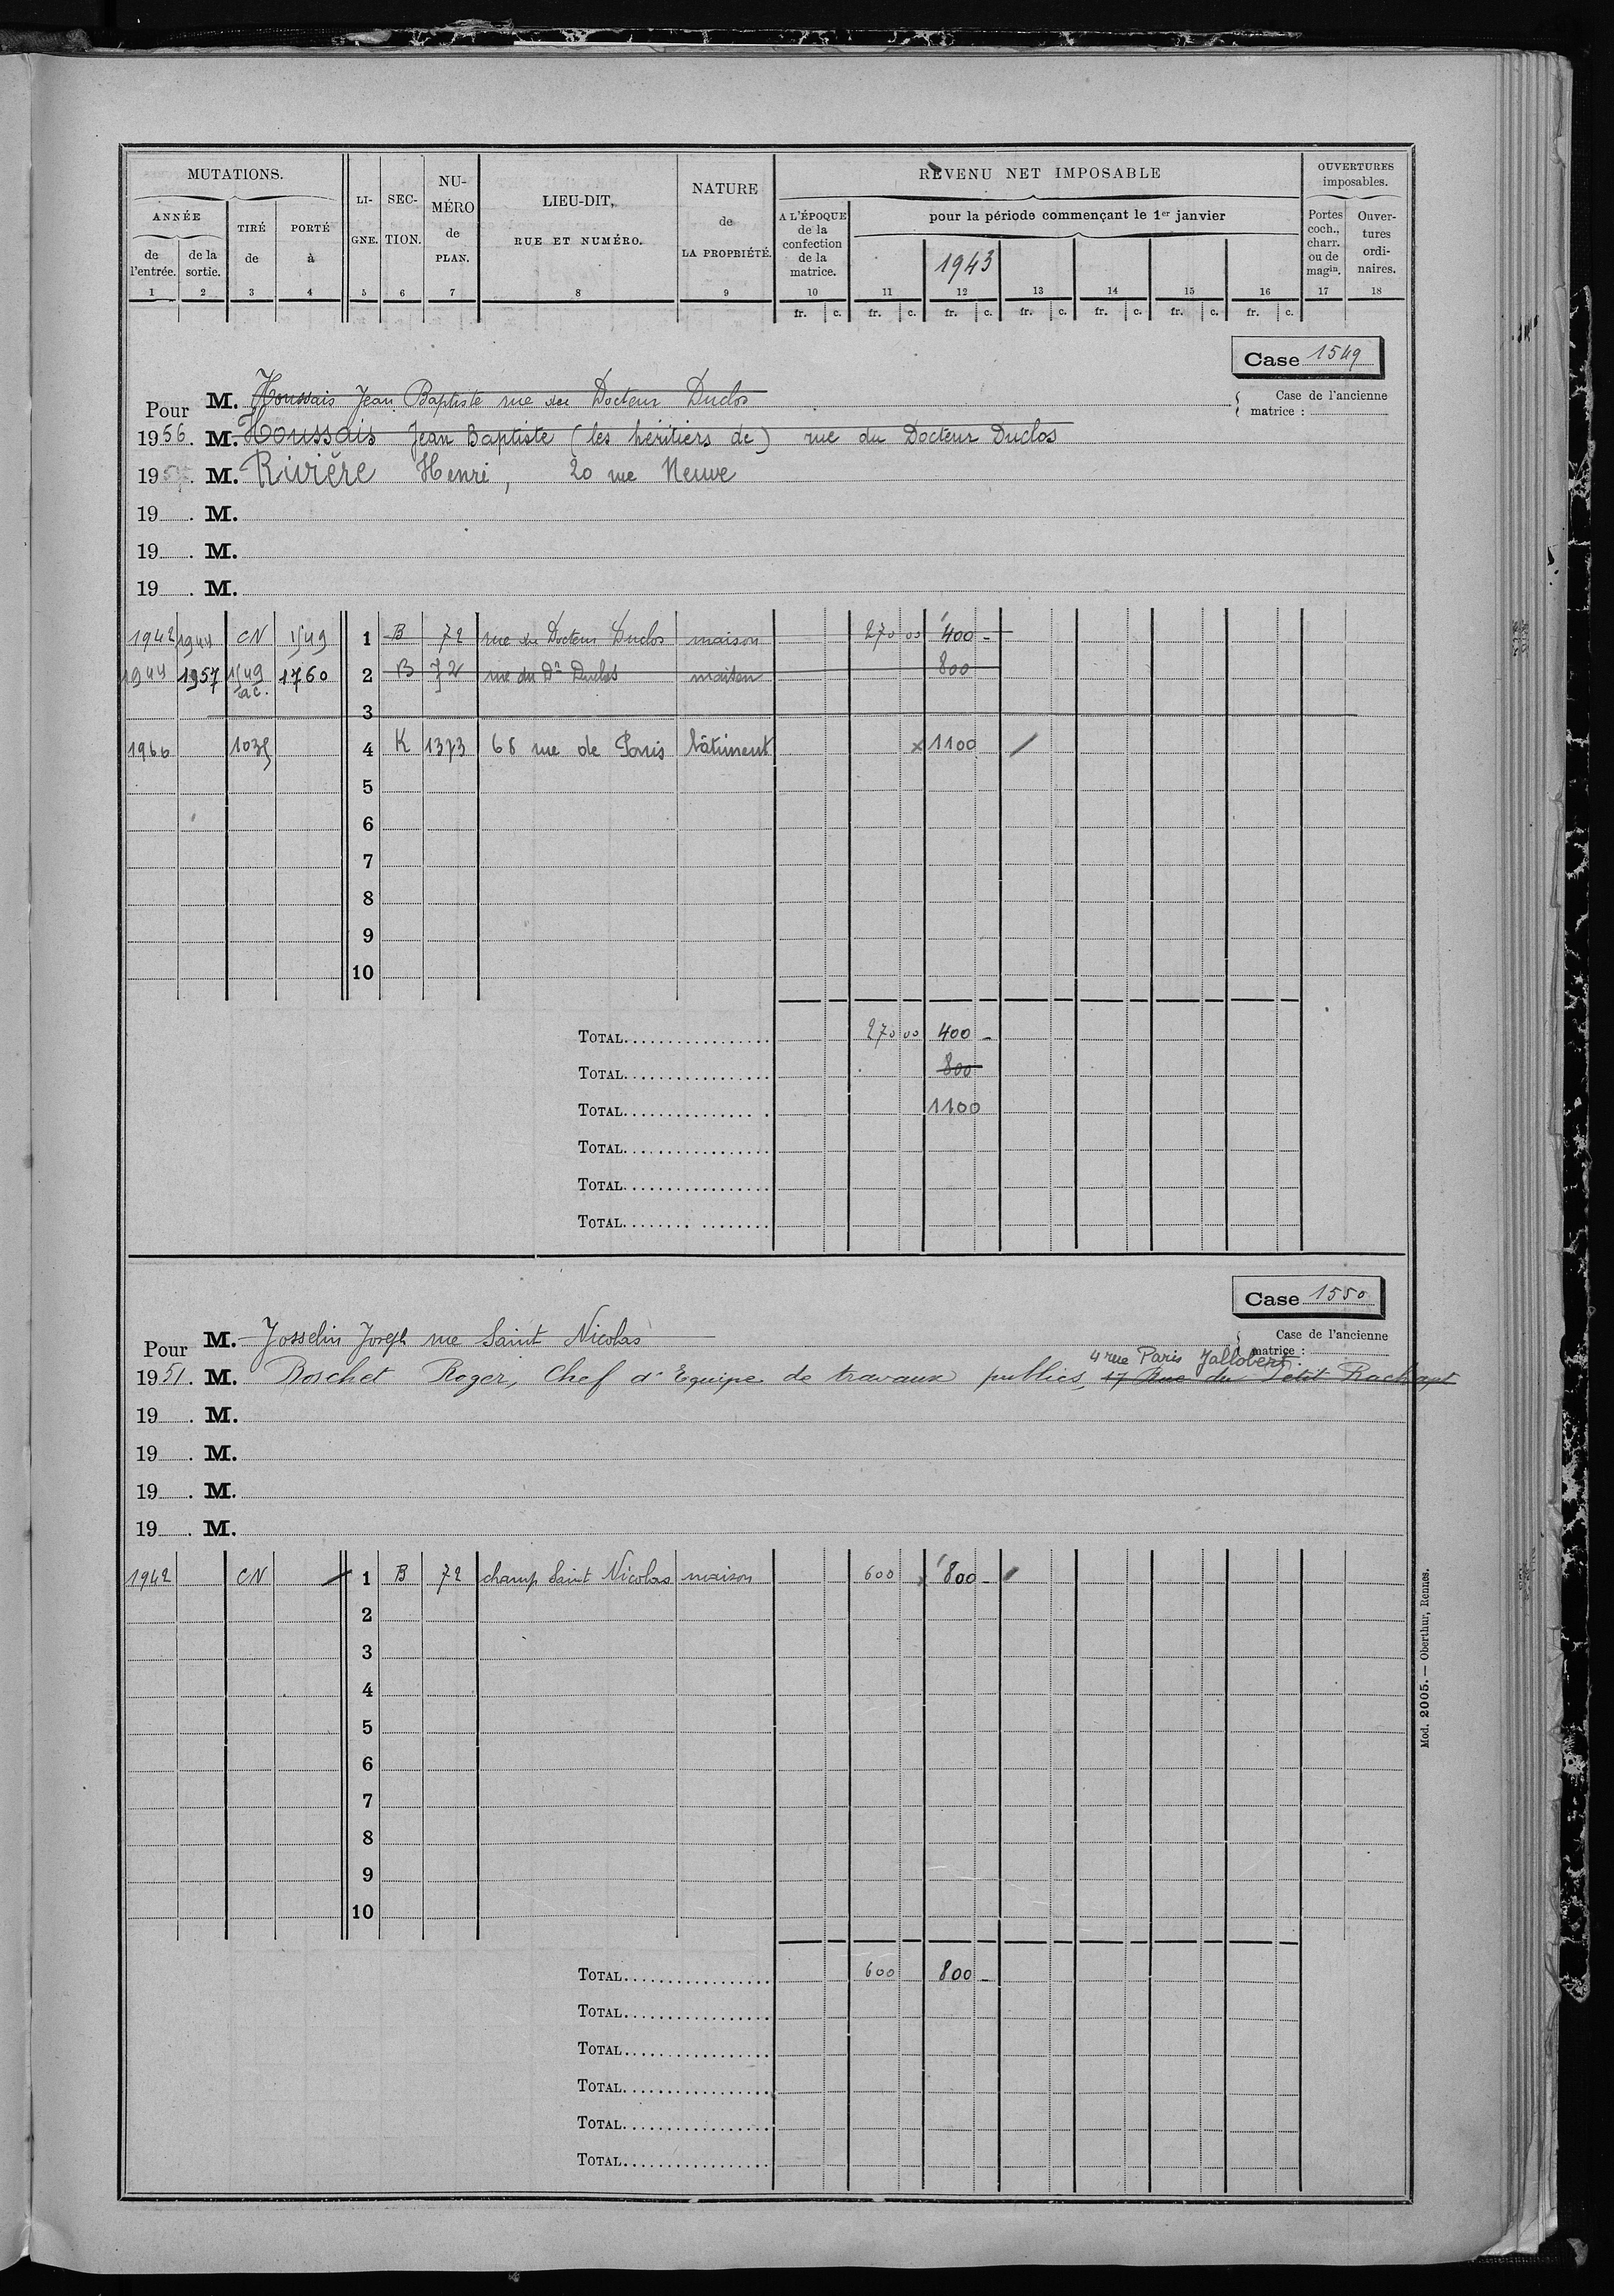 MUTATIONS.
ANNÉE
de l'entrée.
de la sortie.
TIRÉ de
PORTÉ à
LI-GNE.
SEC-TION.
NU-MÉRO de PLAN.
LIEU-DIT, RUE ET NUMÉRO.
NATURE de LA PROPRIÉTÉ.
REVENU NET IMPOSABLE
A L'ÉPOQUE de la confection de la matrice.
pour la période commençant le 1er janvier
1943
OUVERTURES imposables.
Portes coch., charr. ou de magin.
Ouver-tures ordi-naires.
1 2 3 4 5 6 7 8 9 10 11 12 13 14 15 16 17 18
fr. c. fr. c. fr. c. fr. c. fr. c. fr. c. fr. c.
Case 1549
Case de l'ancienne matrice :
Pour M. Houssais Jean Baptiste rue du Docteur Duclos
1956. M. Houssais Jean Baptiste (les héritiers de) rue du Docteur Duclos
19 . M. Rivière Henri, 20 rue Neuve
19 . M.
19 . M.
19 . M.
1942 1944 CN 1549 1 B 72 rue du Docteur Duclos maison 270 00 400 -
1944 1957 1549 ac. 1760 2 B 72 rue du Dr Duclos maison 800
3
1966 1035 4 K 1373 68 rue de Paris bâtiment x 1100
5
6
7
8
9
10
TOTAL 270 00 400 -
TOTAL 800
TOTAL 1100
TOTAL
TOTAL
TOTAL
Case 1550
Case de l'ancienne matrice :
Pour M. Josselin Joseph rue Saint Nicolas
4 rue Paris Jallobert
1951. M. Boschet Roger, Chef d'Equipe de travaux publics, 17 Rue du Petit Rachapt
19 . M.
19 . M.
19 . M.
19 . M.
1942 CN 1 B 72 champ Saint Nicolas maison 600 x 800 -
2
3
4
5
6
7
8
9
10
TOTAL 600 800 -
TOTAL
TOTAL
TOTAL
TOTAL
TOTAL
Mod. 2005. — Oberthur, Rennes.